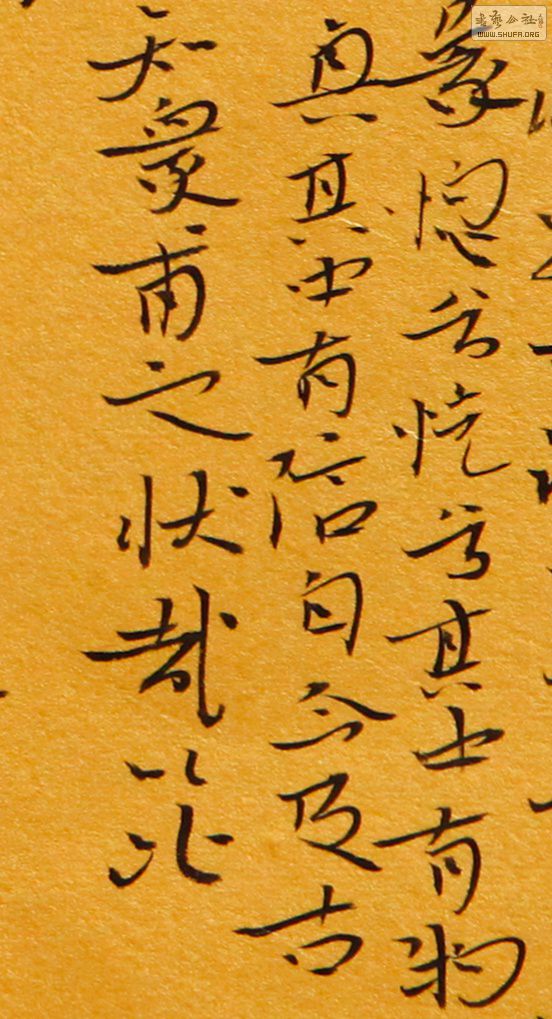 象惚兮恍兮其中有物
真其中有信自今及古
知衆甫之状哉以此
書藝公社
WWW.SHUFA.ORG